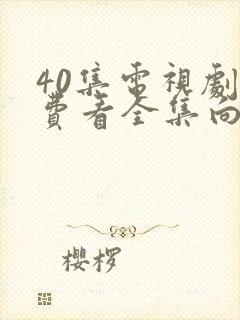 40集電視劇
費看全集向
櫻椤